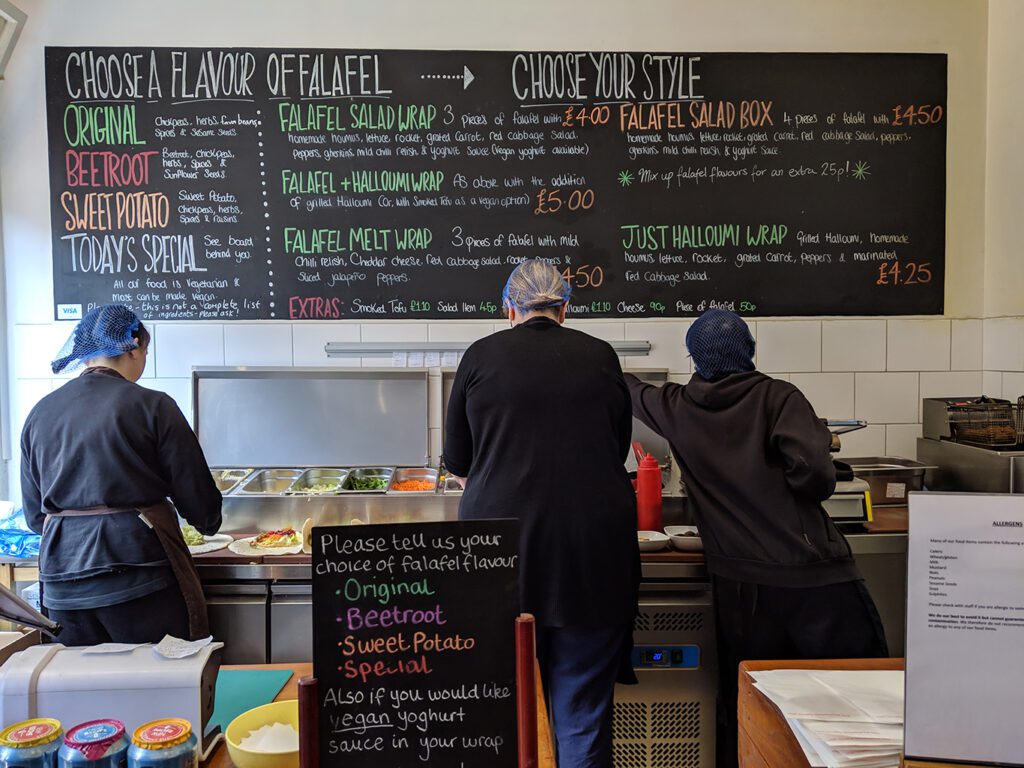 CHOOSE A FLAVOUR OF FALAFEL
CHOOSE YOUR STYLE
ORIGINAL Chickpeas, herbs, fava beans,
Spices & Sesame Seeds.
BEETROOT Beetroot, chickpeas,
herbs, spices &
Sunflower Seeds.
SWEET POTATO Sweet Potato,
Chickpeas, herbs,
Spices & raisins
TODAY'S SPECIAL See board
behind you.
All our food is vegetarian &
most can be made vegan.
this is not a complete list
of ingredients - please ask!
VISA
FALAFEL SALAD WRAP 3 pieces of falafel with £4.00
homemade houmus, lettuce, rocket, grated Carrot, red cabbage Salad,
peppers, gherkins, mild chilli relish & yoghurt Sauce (vegan yoghurt available)
FALAFEL + HALLOUMI WRAP As above with the addition
of grilled Halloumi (Or, with Smoked Tofu as a vegan option) £5.00
FALAFEL MELT WRAP 3 pieces of falafel with mild
Chilli relish, Cheddar cheese, red cabbage salad, rocket, peppers &
Sliced jalapeño peppers. 50
EXTRAS: Smoked Tofu £1.10 Salad Item 45p £1.10 Cheese 90p Piece of falafel 50p
FALAFEL SALAD BOX 4 pieces of falafel with £4.50
homemade houmus, lettuce, rocket, grated carrot, red cabbage Salad, peppers,
gherkins, mild chilli relish & yoghurt Sauce
Mix up falafel flavours for an extra 25p!
JUST HALLOUMI WRAP Grilled Halloumi, homemade
houmus, lettuce, rocket, grated Carrot, peppers & marinated
red Cabbage Salad. £4.25
Please tell us your
choice of falafel flavour
• Original
• Beetroot
• Sweet Potato
• Special
Also if you would like
vegan yoghurt
sauce in your wrap
ALLERGENS
Many of our food items contain the following
Celery
Wheat/gluten
Milk
Mustard
Nuts
Peanuts
Sesame Seeds
Soya
Sulphites
Please check with staff if you are allergic to
We do our best to avoid it but cannot
contamination. We therefore do not recommend
an allergy to any of our food items.